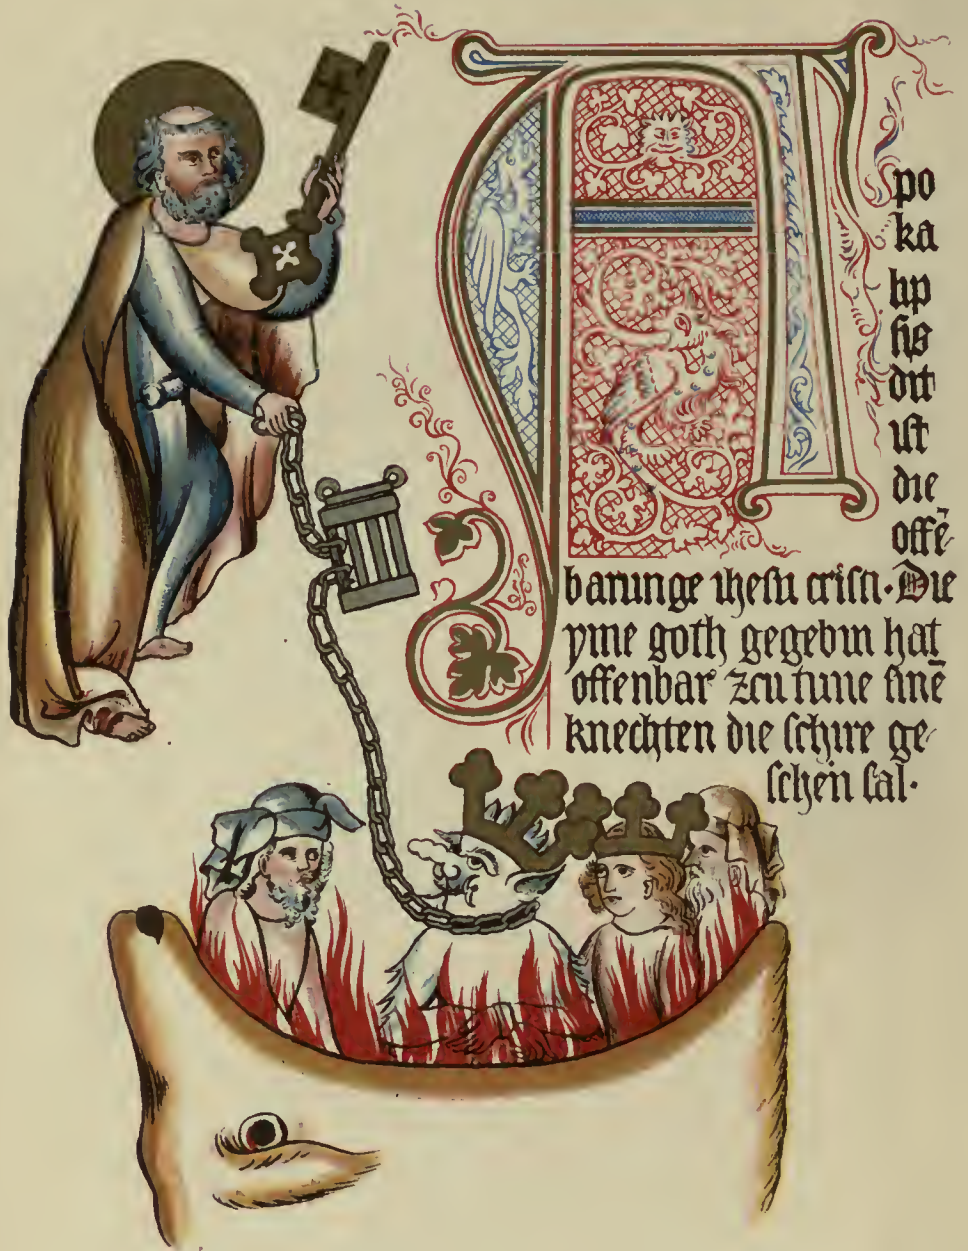 A
po
ka
lip
sis
dit
ist
die
offē
barunge ihesu cristi· Die
yme goth gegebin hat
offenbar zcu tune sinē
knechten die schire ge
schen sal·